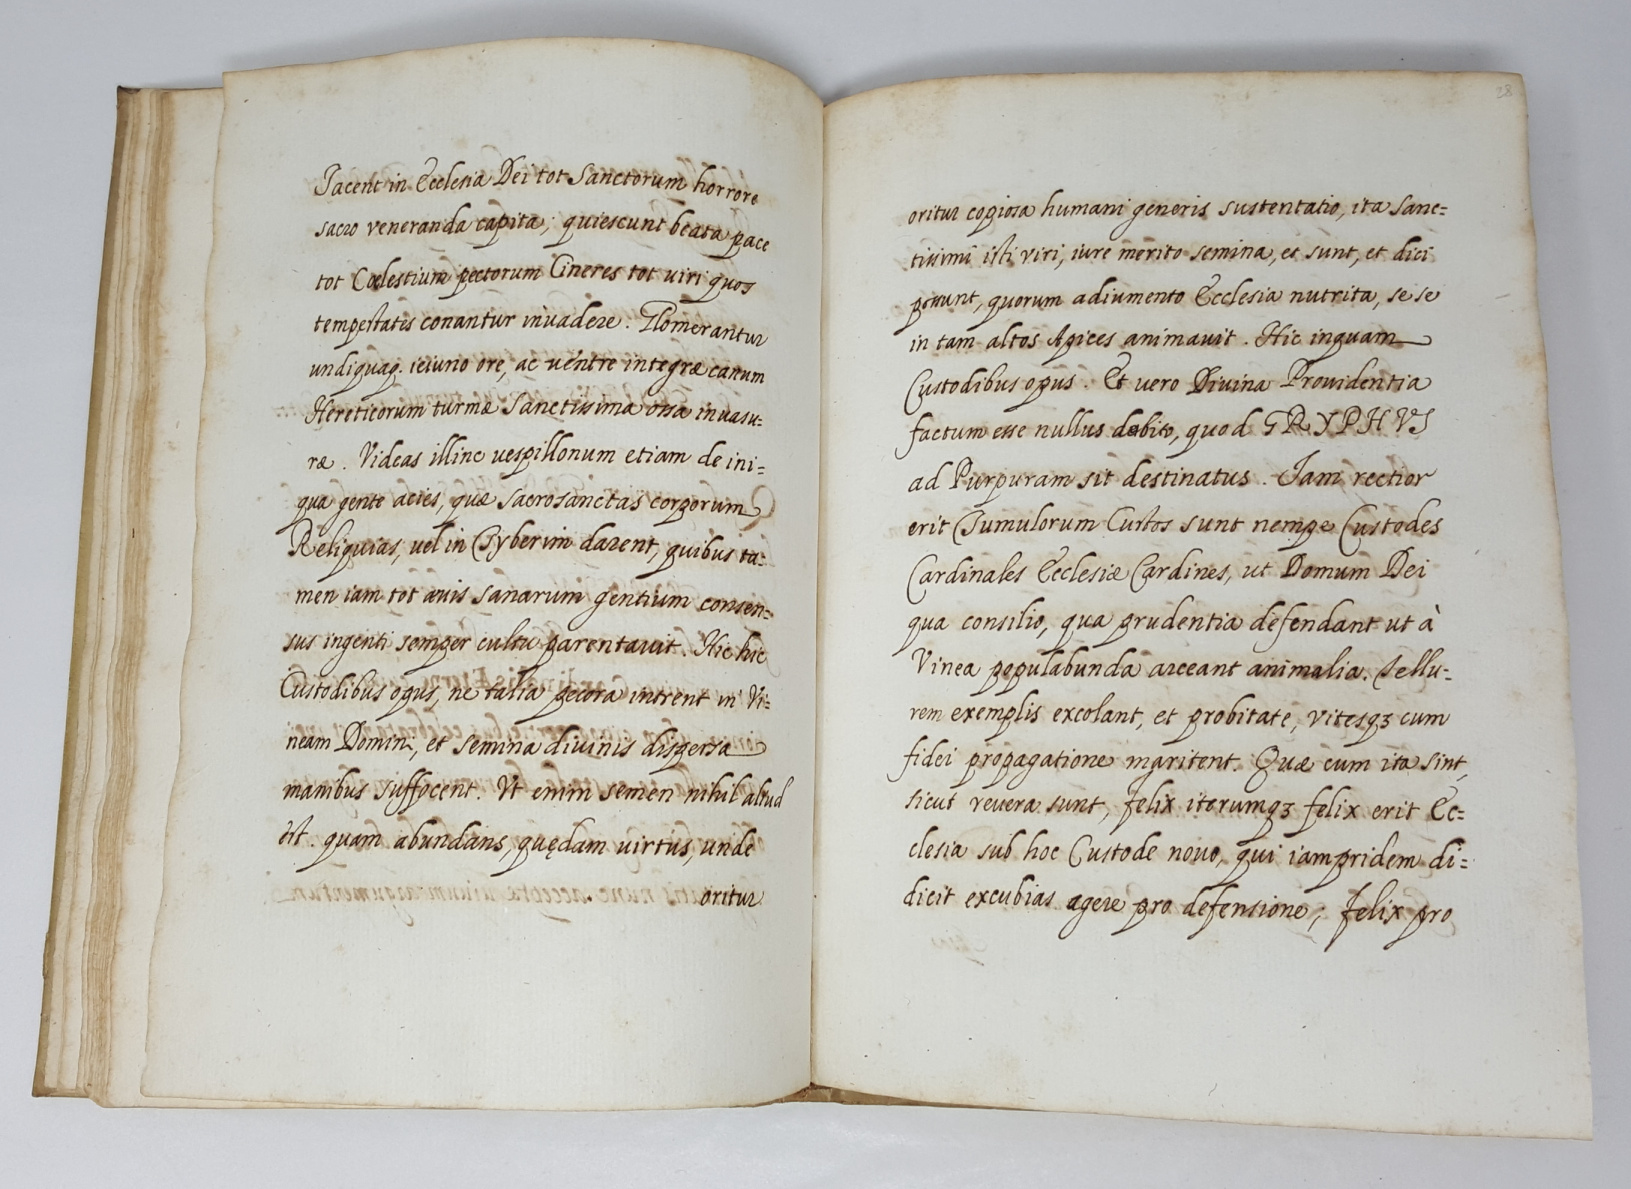 Jacent in Ecclesia Dei tot Sanctorum horrore
sacro veneranda capita; quiescunt beata pace
tot Cœlestium pectorum Cineres tot viri quos
tempestatis conantur invadere. Glomerantur
undiquaq. ieiuno ore, ac ventre integræ canum
Hereticorum turmæ Sanctissima ossa invasu=
ræ. Videas illinc vespillonum etiam de ini=
qua gente acies, quæ sacrosanctas corporum
Reliquias, vel in Tyberim darent, quibus ta=
men iam tot avis sanarum gentium consen=
sus ingenti semper cultu parentavit. Hic hic
Custodibus opus, ne talia pecora intrent in Vi=
neam Domini, et semina divinis dispersa
manibus suffocent. Ut enim semen nihil aliud
est. quam abundans, quędam virtus, unde
oritur
28
oritur copiosa humani generis sustentatio, ita Sanc=
tissimi isti viri, iure merito semina, et sunt, et dici
possunt, quorum adiumento Ecclesia nutrita, se se
in tam altos Apices animavit. Hic inquam
Custodibus opus. Et vero Divina Providentia
factum esse nullus dubito, quod GRYPHVS
ad Purpuram sit destinatus. Jam rectior
erit Tumulorum Custos sunt nempe Custodes
Cardinales Ecclesiæ Cardines, ut Domum Dei
qua consilio, qua prudentia defendant ut à
Vinea populabunda arceant animalia. Tellu=
rem exemplis excolant, et probitate, vitesqꝫ cum
fidei propagatione maritent. Quæ cum ita sint,
sicut revera sunt, felix iterumqꝫ felix erit Ec=
clesia sub hoc Custode novo, qui iampridem di=
dicit excubias agere pro defensione; felix pro